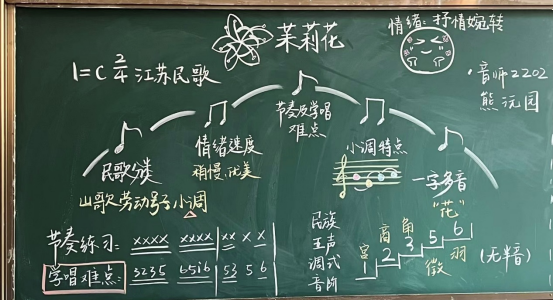 茉莉花
情绪:抒情婉转
1=C 2/4 江苏民歌
·音师2202
熊沅园
节奏及学唱
难点
情绪速度
稍慢、优美
小调特点
民歌分类
山歌 劳动号子 小调
一字多音
"花"
节奏练习: xxxx xxxx | xx x x
学唱难点: 3235 6516 | 53 5 6
民族
五声
调式
音阶
宫 商 角 徵 羽
1 2 3 5 6
(无半音)